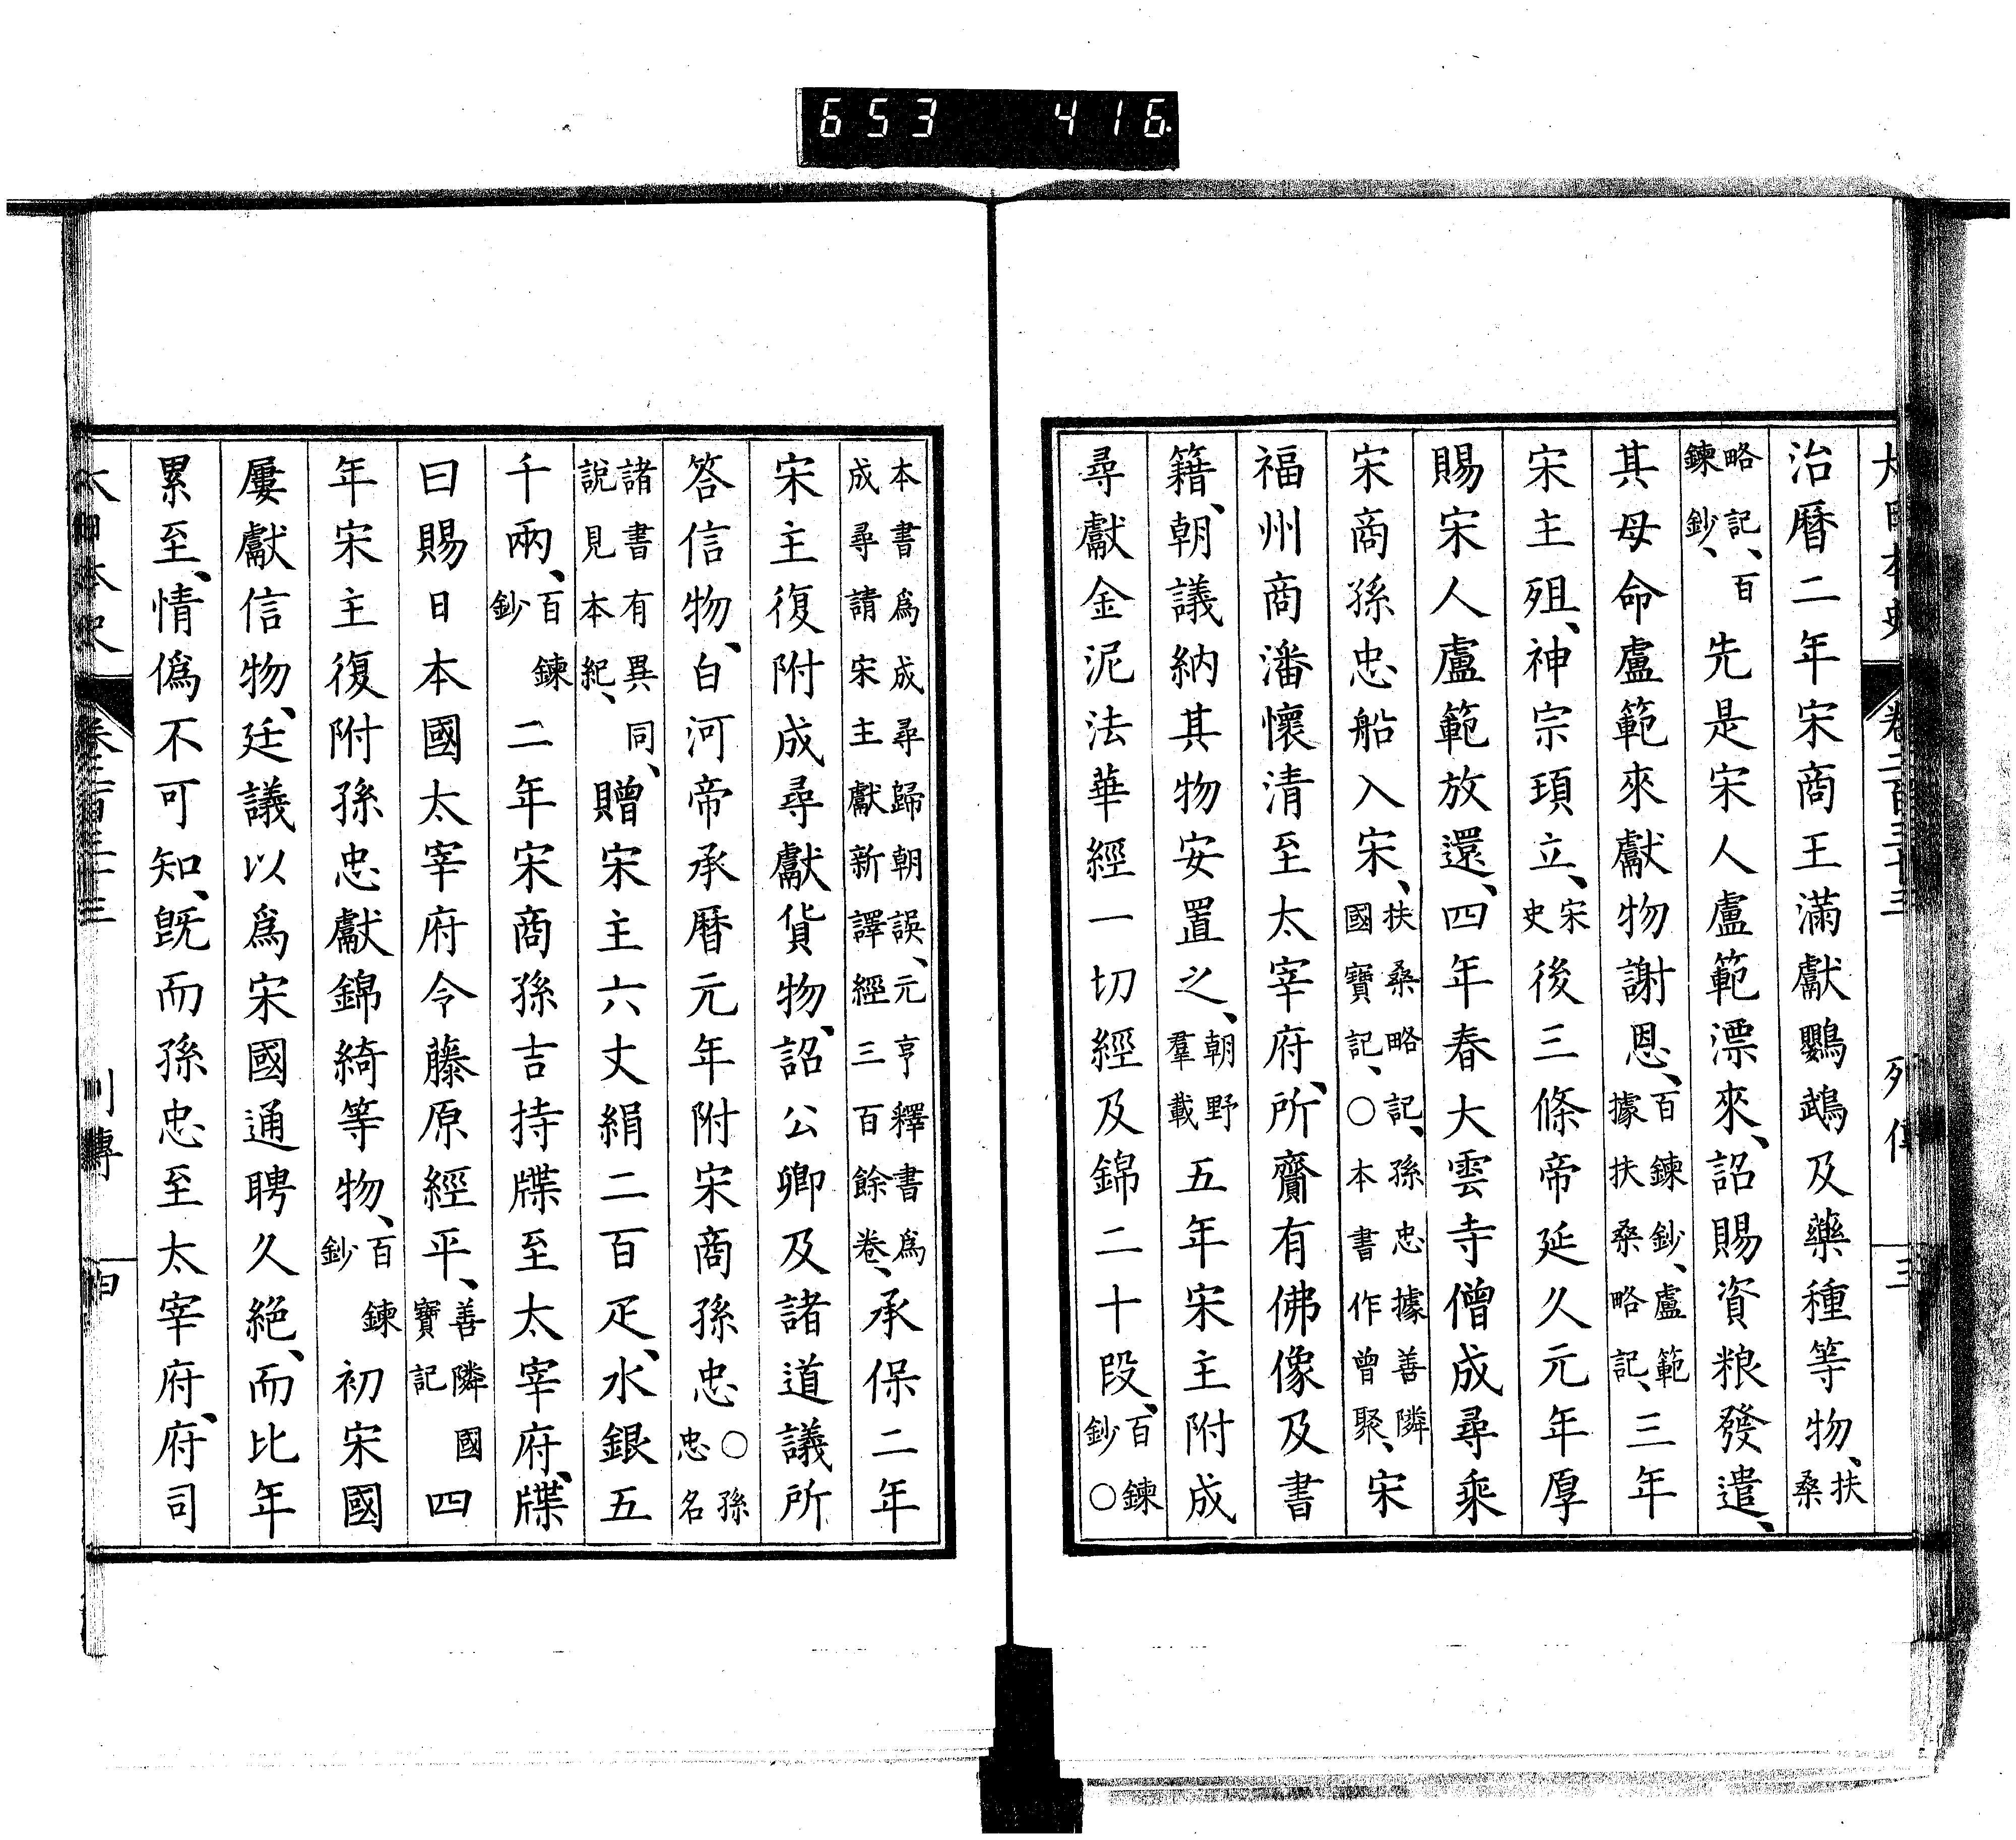 653 416
大日本史 卷二百三十三 列傳 三
治曆二年宋商王滿獻鸚鵡及藥種等物、扶桑
略記、百鍊鈔、先是宋人盧範漂來、詔賜資粮發遣、
其母命盧範來獻物謝恩、百鍊鈔、盧範據扶桑略記、三年
宋主殂、神宗頊立、宋史後三條帝延久元年厚
賜宋人盧範放還、四年春大雲寺僧成尋乘
宋商孫忠船入宋、扶桑略記、孫忠據善隣國寶記、○本書作曾聚、宋
福州商潘懷清至太宰府、所齎有佛像及書
籍、朝議納其物安置之、朝野羣載五年宋主附成
尋獻金泥法華經一切經及錦二十段、百鍊鈔○
本書爲成尋歸朝誤、元亨釋書爲成尋請宋主獻新譯經三百餘卷、承保二年
宋主復附成尋獻貨物、詔公卿及諸道議所
答信物、白河帝承曆元年附宋商孫忠○孫忠名
諸書有異同、說見本紀、贈宋主六丈絹二百疋、水銀五
千兩、百鍊鈔二年宋商孫吉持牒至太宰府、牒
曰賜日本國太宰府令藤原經平、善隣國寶記四
年宋主復附孫忠獻錦綺等物、百鍊鈔初宋國
屢獻信物、廷議以爲宋國通聘久絕、而比年
累至、情僞不可知、旣而孫忠至太宰府、府司
大日本史 卷二百三十三 列傳 四